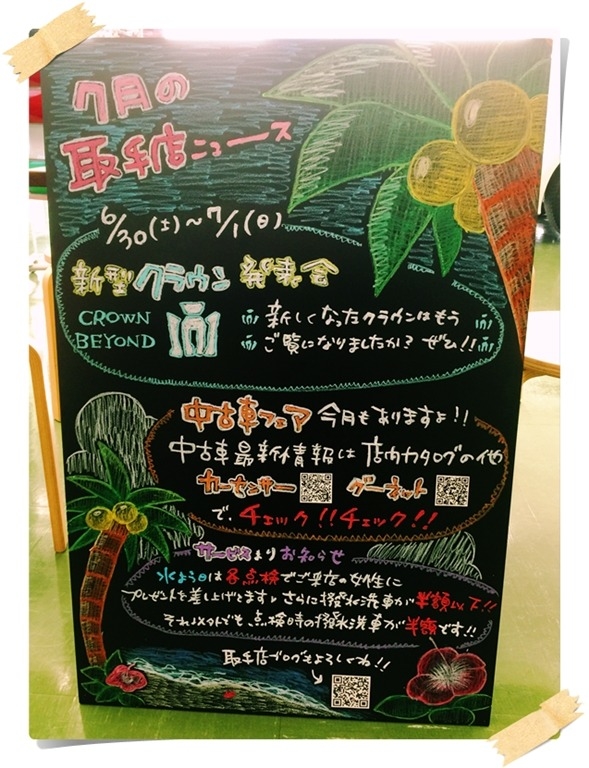 7月の
取手店ニュース
6/30(土)~7/1(日)
新型クラウン発表会
CROWN
BEYOND
新しくなったクラウンはもう
ご覧になりましたか? ぜひ!!
中古車フェア 今月もありますよ!!
中古車最新情報は店内カタログの他
カーセンサー グーネット
で、チェック!!チェック!!
サービスよりお知らせ
水よう日は各点検でご来店の女性に
プレゼントを差し上げてます。さらに撥水洗車が半額以下!!
それ以外でも点検時の撥水洗車が半額です!!
取手店ブログもよろしくね!!